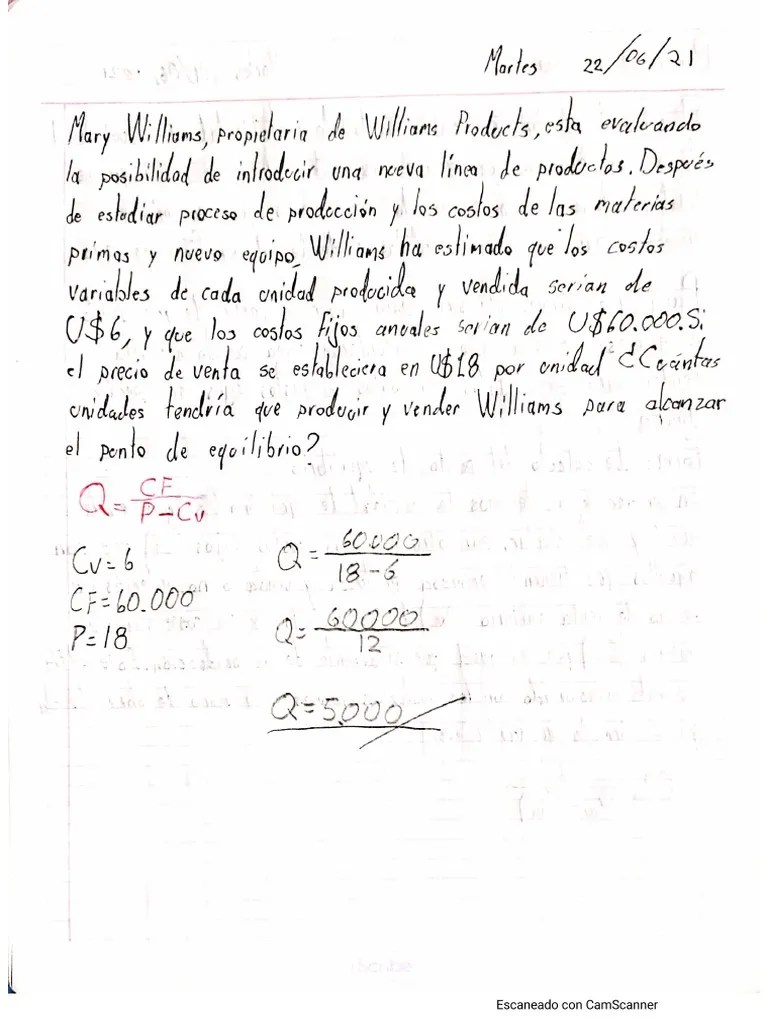 Martes 22/06/21
Mary Williams, propietaria de Williams Products, esta evaluando
la posibilidad de introducir una nueva línea de productos. Después
de estudiar proceso de producción y los costos de las materias
primas y nuevo equipo, Williams ha estimado que los costos
variables de cada unidad producida y vendida serian de
U$6, y que los costos fijos anuales serian de U$60.000. Si
el precio de venta se estableciera en U$18 por unidad ¿Cuántas
unidades tendría que producir y vender Williams para alcanzar
el punto de equilibrio?
Q = CF / P - Cv
Cv = 6
CF = 60.000
P = 18
Q = 60.000 / 18 - 6
Q = 60000 / 12
Q = 5.000
Escaneado con CamScanner